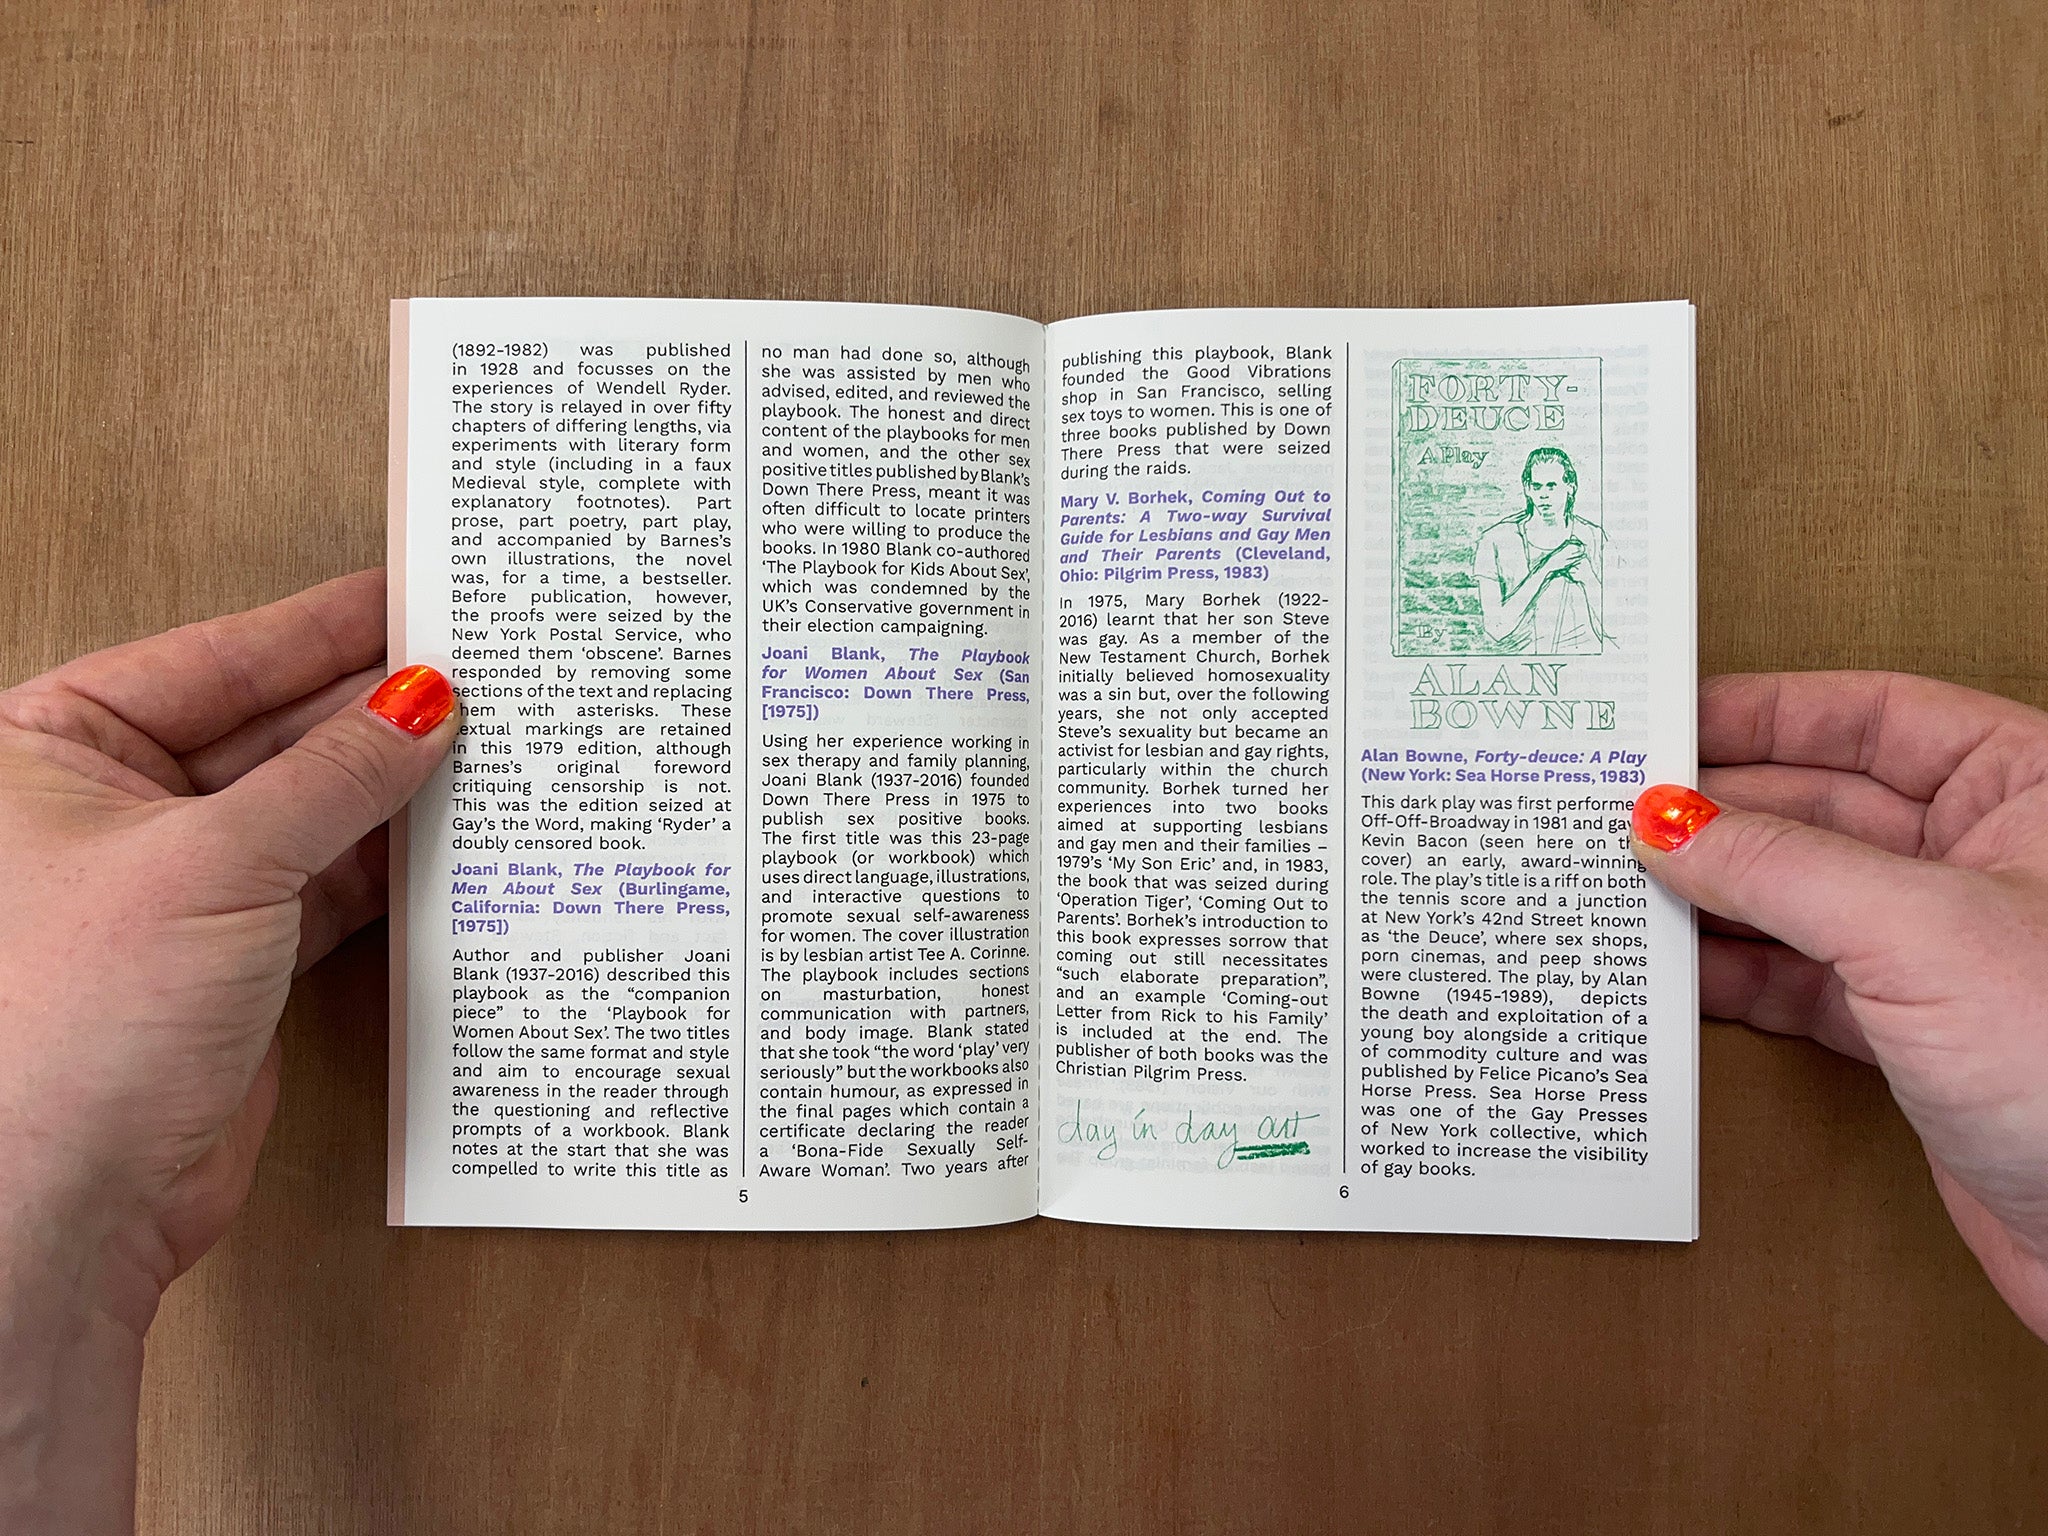 (1892-1982) was published
in 1928 and focusses on the
experiences of Wendell Ryder.
The story is relayed in over fifty
chapters of differing lengths, via
experiments with literary form
and style (including in a faux
Medieval style, complete with
explanatory footnotes). Part
prose, part poetry, part play,
and accompanied by Barnes's
own illustrations, the novel
was, for a time, a bestseller.
Before publication, however,
the proofs were seized by the
New York Postal Service, who
deemed them ‘obscene’. Barnes
responded by removing some
sections of the text and replacing
them with asterisks. These
textual markings are retained
in this 1979 edition, although
Barnes's original foreword
critiquing censorship is not.
This was the edition seized at
Gay's the Word, making ‘Ryder’ a
doubly censored book.
Joani Blank, The Playbook for
Men About Sex (Burlingame,
California: Down There Press,
[1975])
Author and publisher Joani
Blank (1937-2016) described this
playbook as the “companion
piece” to the ‘Playbook for
Women About Sex’. The two titles
follow the same format and style
and aim to encourage sexual
awareness in the reader through
the questioning and reflective
prompts of a workbook. Blank
notes at the start that she was
compelled to write this title as
no man had done so, although
she was assisted by men who
advised, edited, and reviewed the
playbook. The honest and direct
content of the playbooks for men
and women, and the other sex
positive titles published by Blank's
Down There Press, meant it was
often difficult to locate printers
who were willing to produce the
books. In 1980 Blank co-authored
‘The Playbook for Kids About Sex’,
which was condemned by the
UK's Conservative government in
their election campaigning.
Joani Blank, The Playbook
for Women About Sex (San
Francisco: Down There Press,
[1975])
Using her experience working in
sex therapy and family planning,
Joani Blank (1937-2016) founded
Down There Press in 1975 to
publish sex positive books.
The first title was this 23-page
playbook (or workbook) which
uses direct language, illustrations,
and interactive questions to
promote sexual self-awareness
for women. The cover illustration
is by lesbian artist Tee A. Corinne.
The playbook includes sections
on masturbation, honest
communication with partners,
and body image. Blank stated
that she took “the word ‘play’ very
seriously” but the workbooks also
contain humour, as expressed in
the final pages which contain a
certificate declaring the reader
a ‘Bona-Fide Sexually Self-
Aware Woman’. Two years after
5
publishing this playbook, Blank
founded the Good Vibrations
shop in San Francisco, selling
sex toys to women. This is one of
three books published by Down
There Press that were seized
during the raids.
Mary V. Borhek, Coming Out to
Parents: A Two-way Survival
Guide for Lesbians and Gay Men
and Their Parents (Cleveland,
Ohio: Pilgrim Press, 1983)
In 1975, Mary Borhek (1922-
2016) learnt that her son Steve
was gay. As a member of the
New Testament Church, Borhek
initially believed homosexuality
was a sin but, over the following
years, she not only accepted
Steve's sexuality but became an
activist for lesbian and gay rights,
particularly within the church
community. Borhek turned her
experiences into two books
aimed at supporting lesbians
and gay men and their families –
1979's ‘My Son Eric’ and, in 1983,
the book that was seized during
‘Operation Tiger’, ‘Coming Out to
Parents’. Borhek's introduction to
this book expresses sorrow that
coming out still necessitates
“such elaborate preparation”,
and an example ‘Coming-out
Letter from Rick to his Family’
is included at the end. The
publisher of both books was the
Christian Pilgrim Press.
day in day art
FORTY-
DEUCE
A Play
By
ALAN
BOWNE
Alan Bowne, Forty-deuce: A Play
(New York: Sea Horse Press, 1983)
This dark play was first performed
Off-Off-Broadway in 1981 and gave
Kevin Bacon (seen here on the
cover) an early, award-winning
role. The play's title is a riff on both
the tennis score and a junction
at New York's 42nd Street known
as ‘the Deuce’, where sex shops,
porn cinemas, and peep shows
were clustered. The play, by Alan
Bowne (1945-1989), depicts
the death and exploitation of a
young boy alongside a critique
of commodity culture and was
published by Felice Picano's Sea
Horse Press. Sea Horse Press
was one of the Gay Presses
of New York collective, which
worked to increase the visibility
of gay books.
6